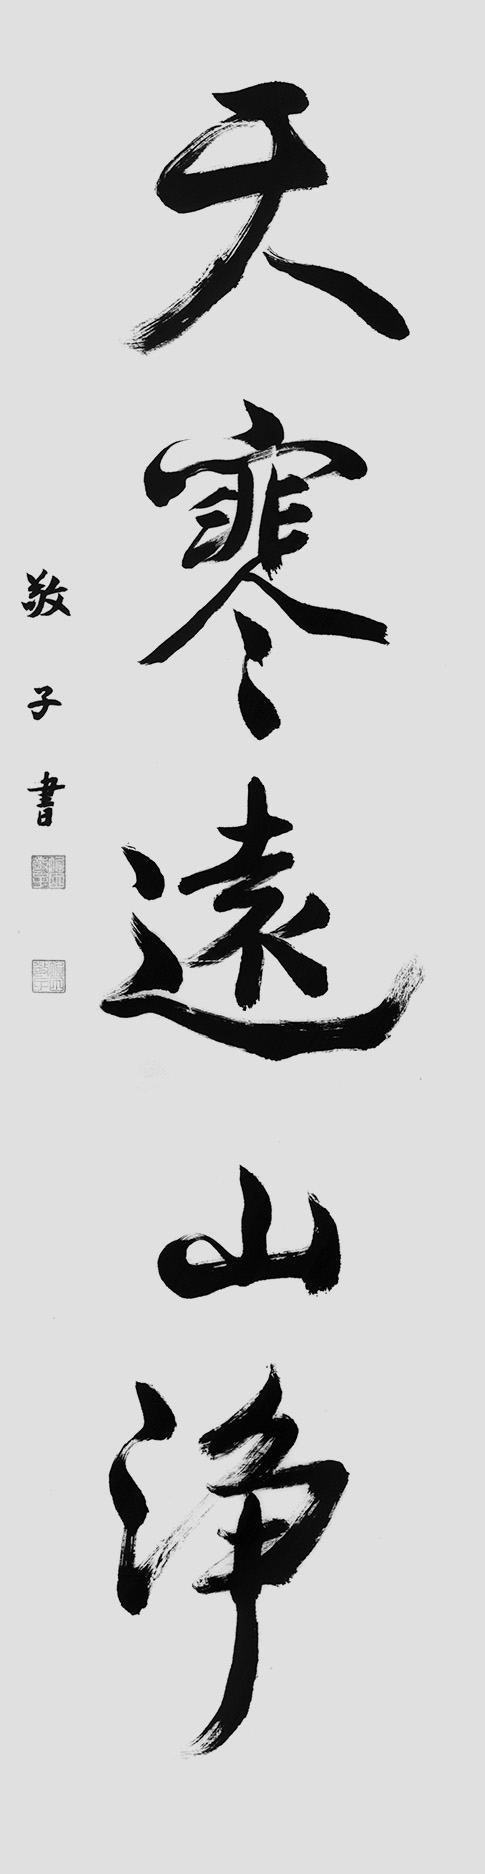 天寒遠山浄
敬子書